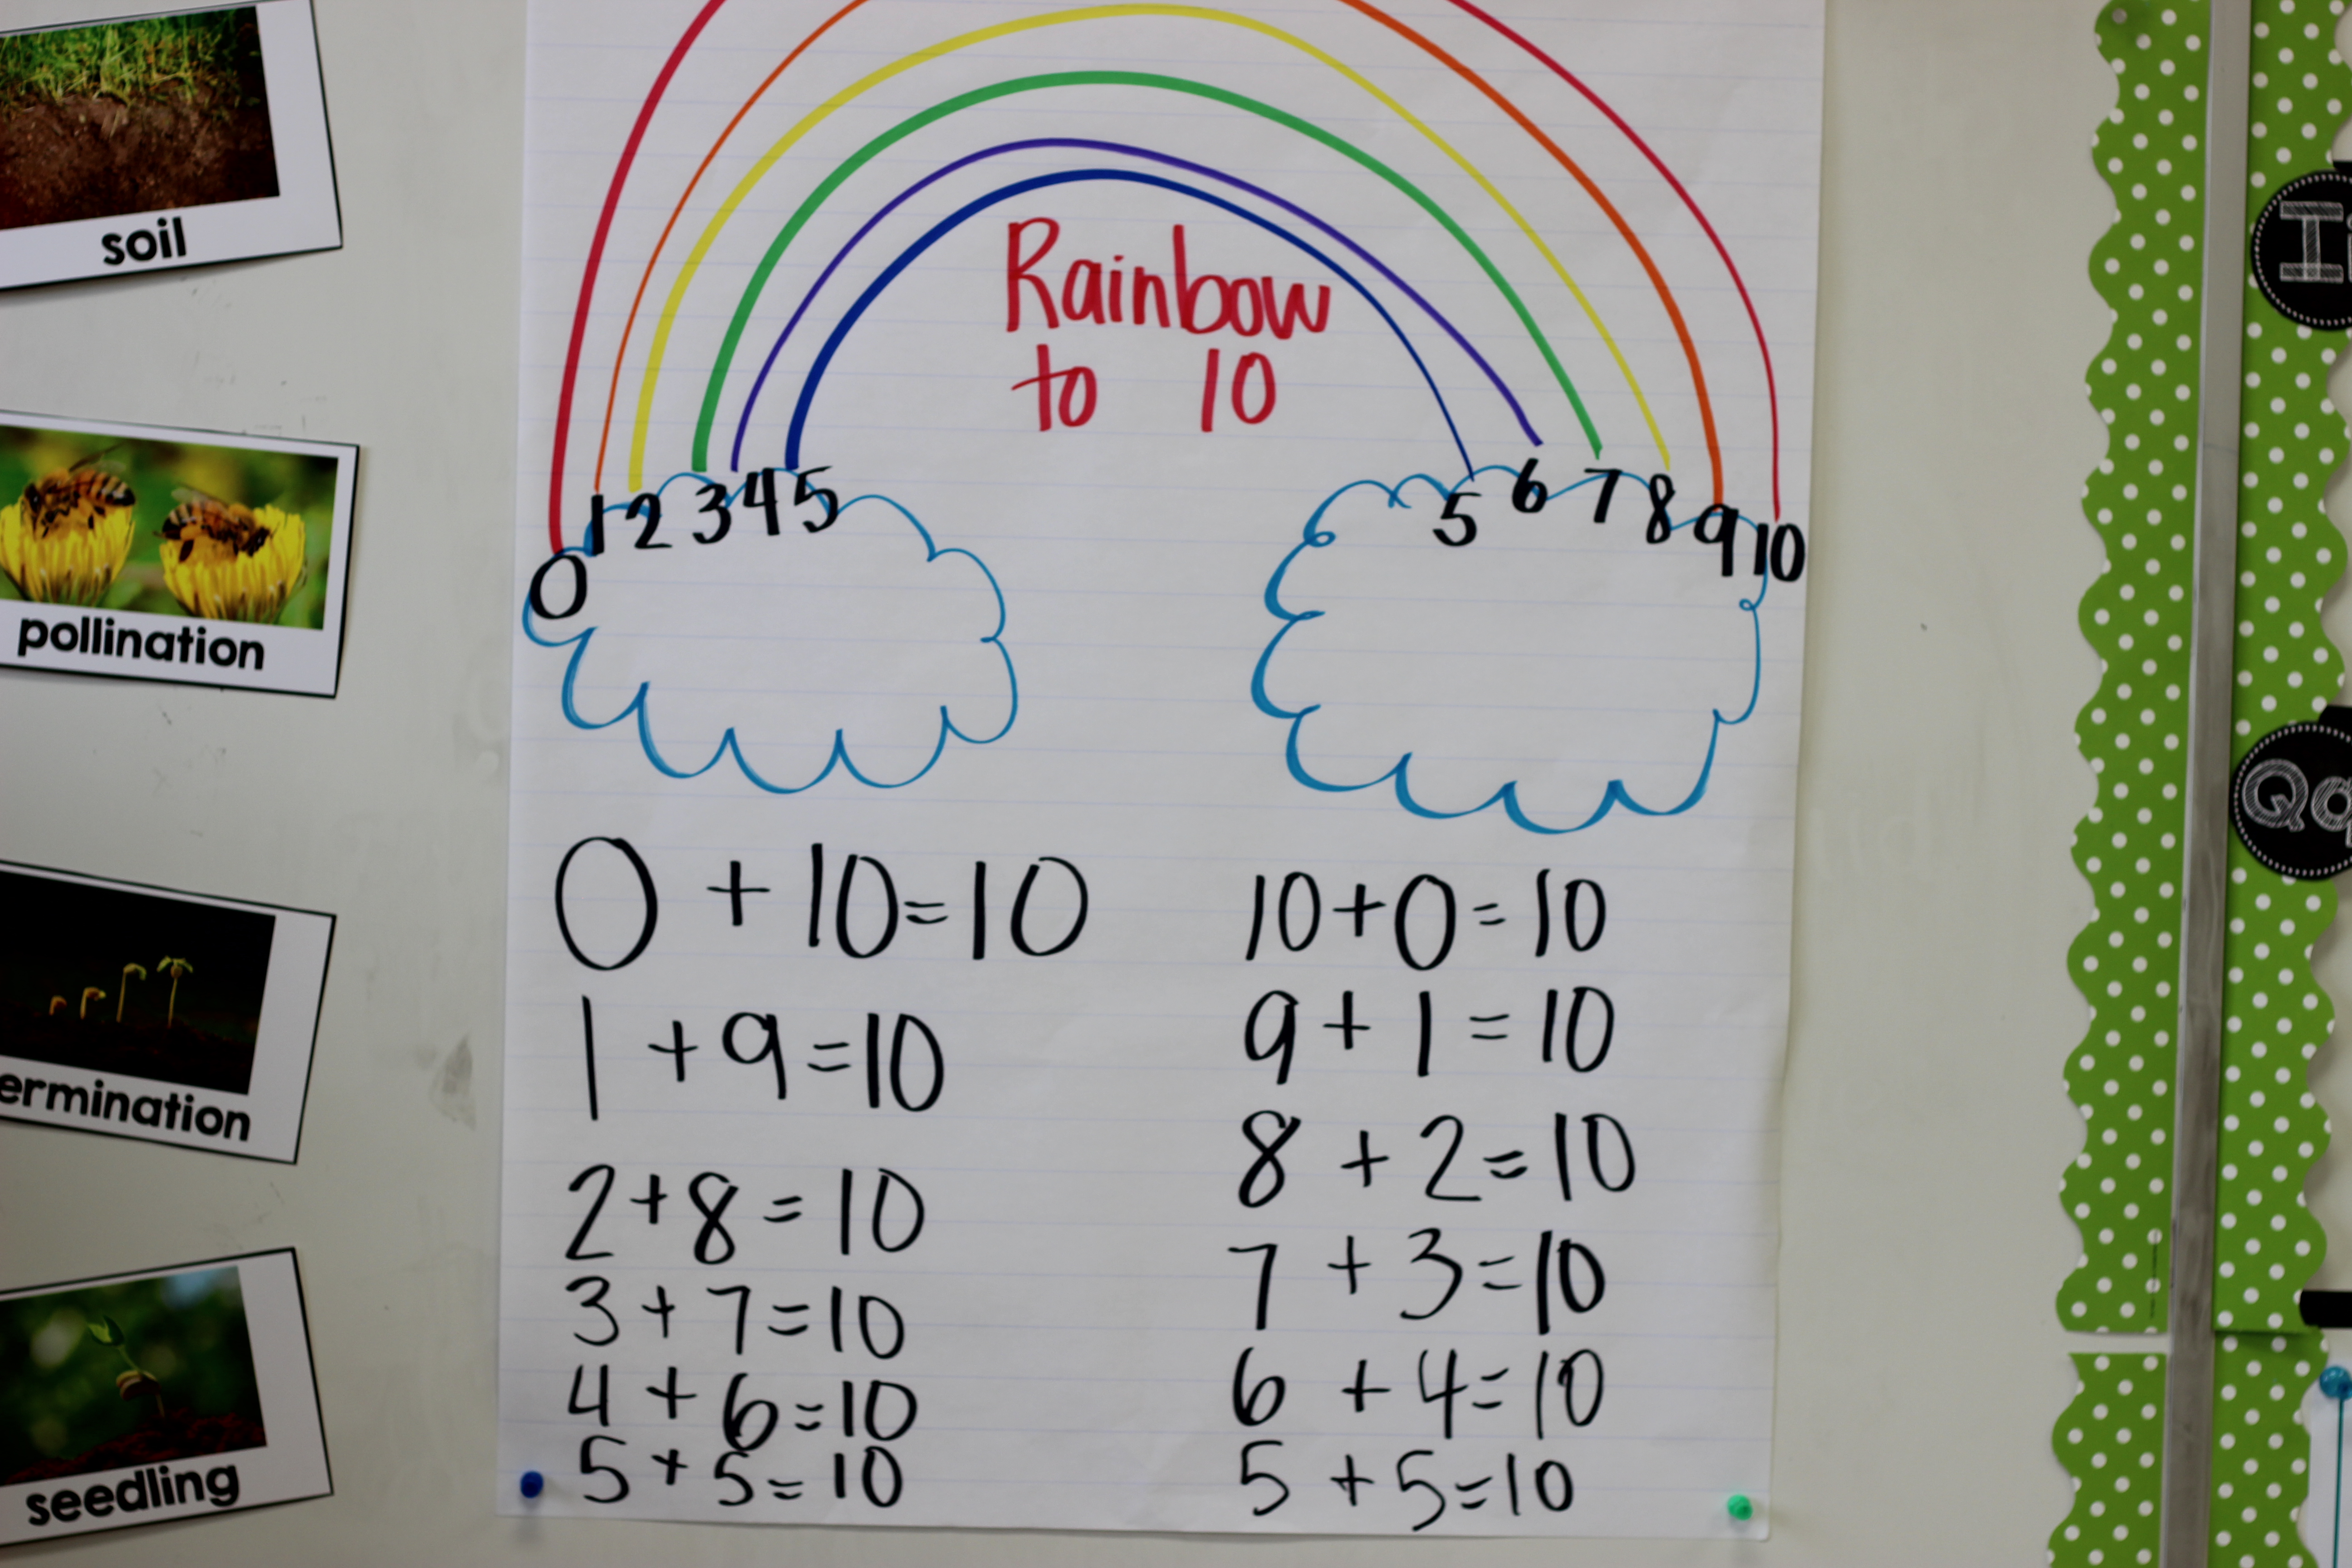 soil
pollination
ermination
seedling
Rainbow
to 10
0 1 2 3 4 5
5 6 7 8 9 10
0 + 10 = 10
1 + 9 = 10
2 + 8 = 10
3 + 7 = 10
4 + 6 = 10
5 + 5 = 10
10 + 0 = 10
9 + 1 = 10
8 + 2 = 10
7 + 3 = 10
6 + 4 = 10
5 + 5 = 10
Qq